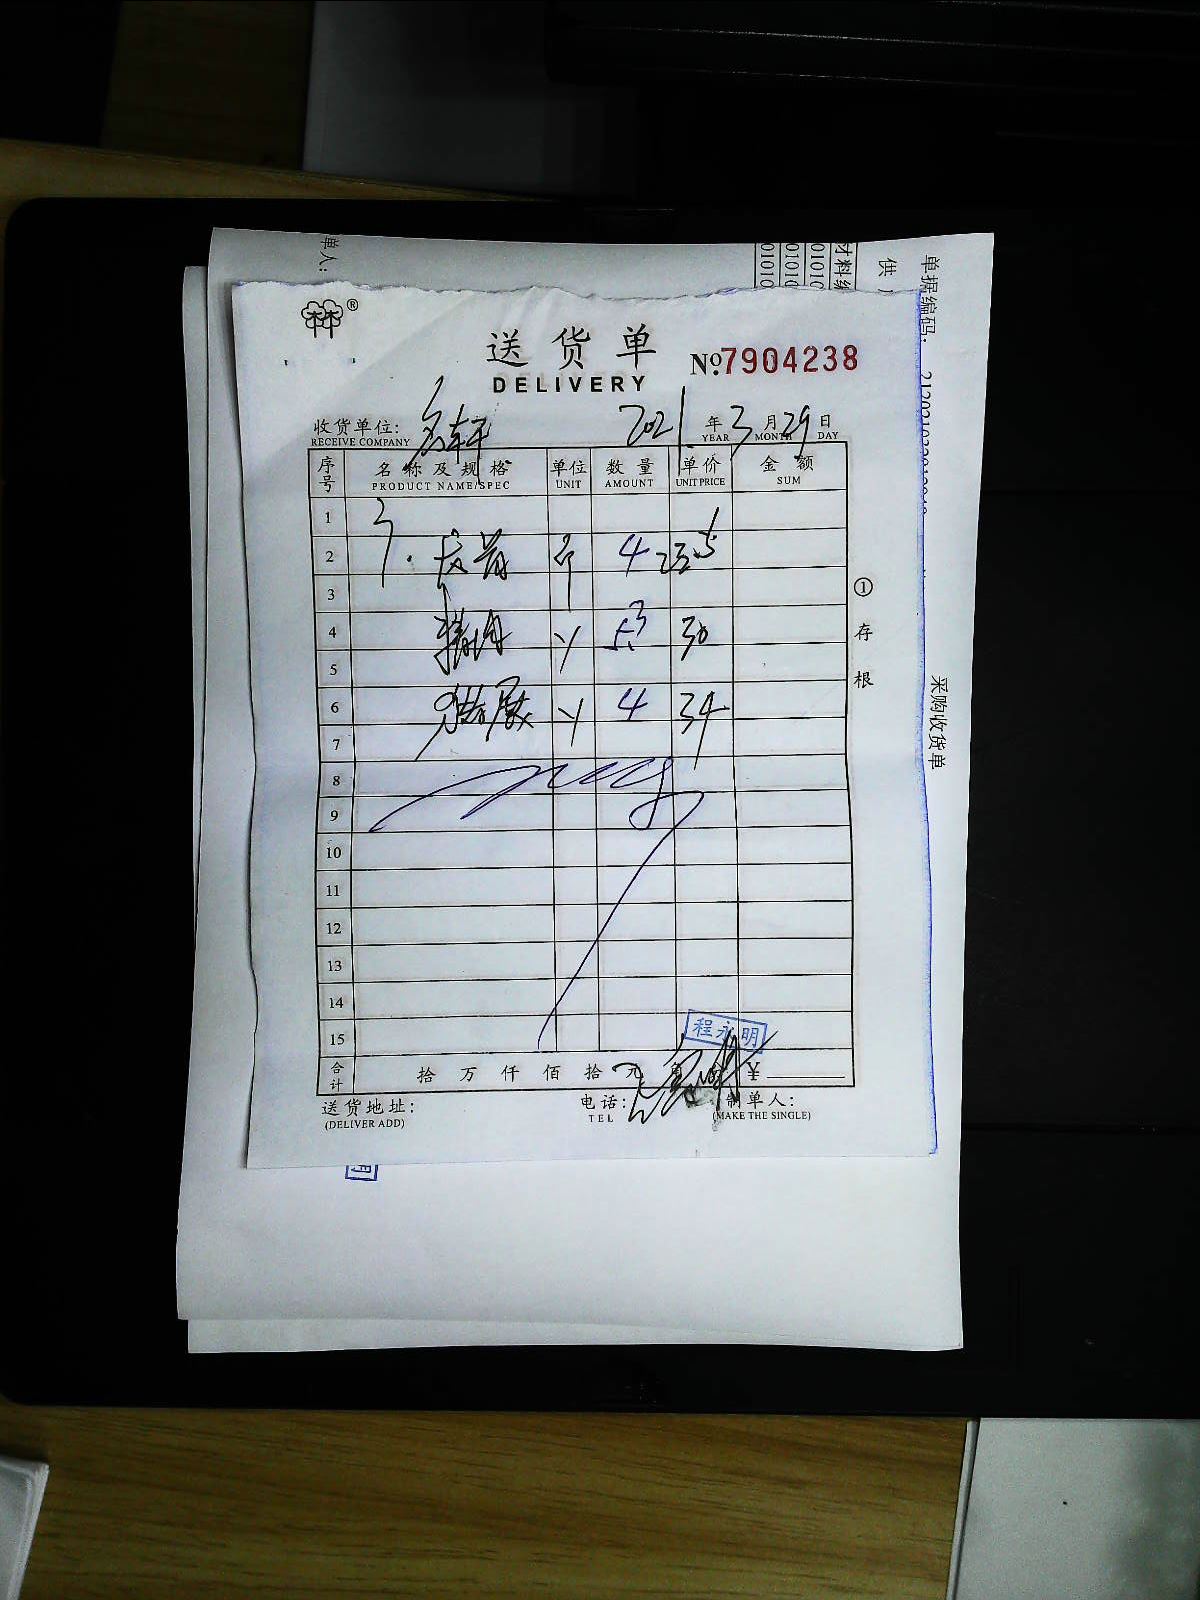 单人：
材料编
供
单据编码：
010101
采购收货单
林林®
送货单
DELIVERY
№7904238
收货单位：名轩 2021年3月29日
RECEIVE COMPANY YEAR MONTH DAY
序号 名称及规格 单位 数量 单价 金额
PRODUCT NAME/SPEC UNIT AMOUNT UNIT PRICE SUM
1
2 4 23.5
3
4 精肉 53 30
5
6 猪展 4 34
7
8
9
10
11
12
13
14
15
程永明
合计 拾 万 仟 佰 拾 元 ¥
送货地址： 电话： 制单人：
(DELIVER ADD) TEL (MAKE THE SINGLE)
①存根
明